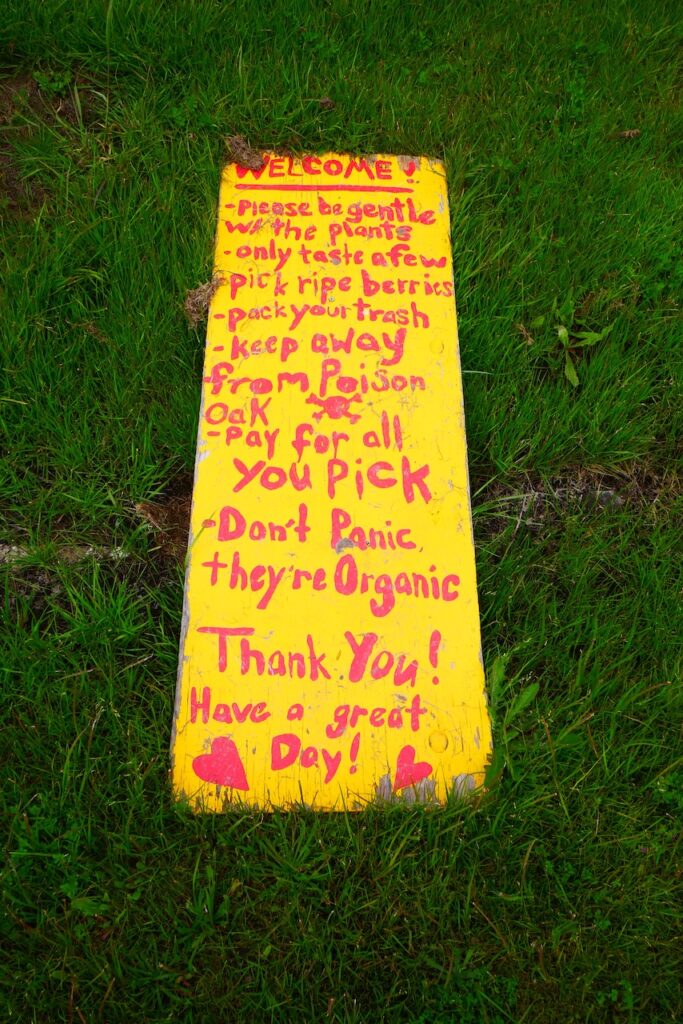 WELCOME!
-please be gentle
w/ the plants
-only taste a few
-pick ripe berries
-pack your trash
-keep away
from Poison
Oak
-Pay for all
You Pick
-Don't Panic,
they're Organic
Thank You!
Have a great
Day!